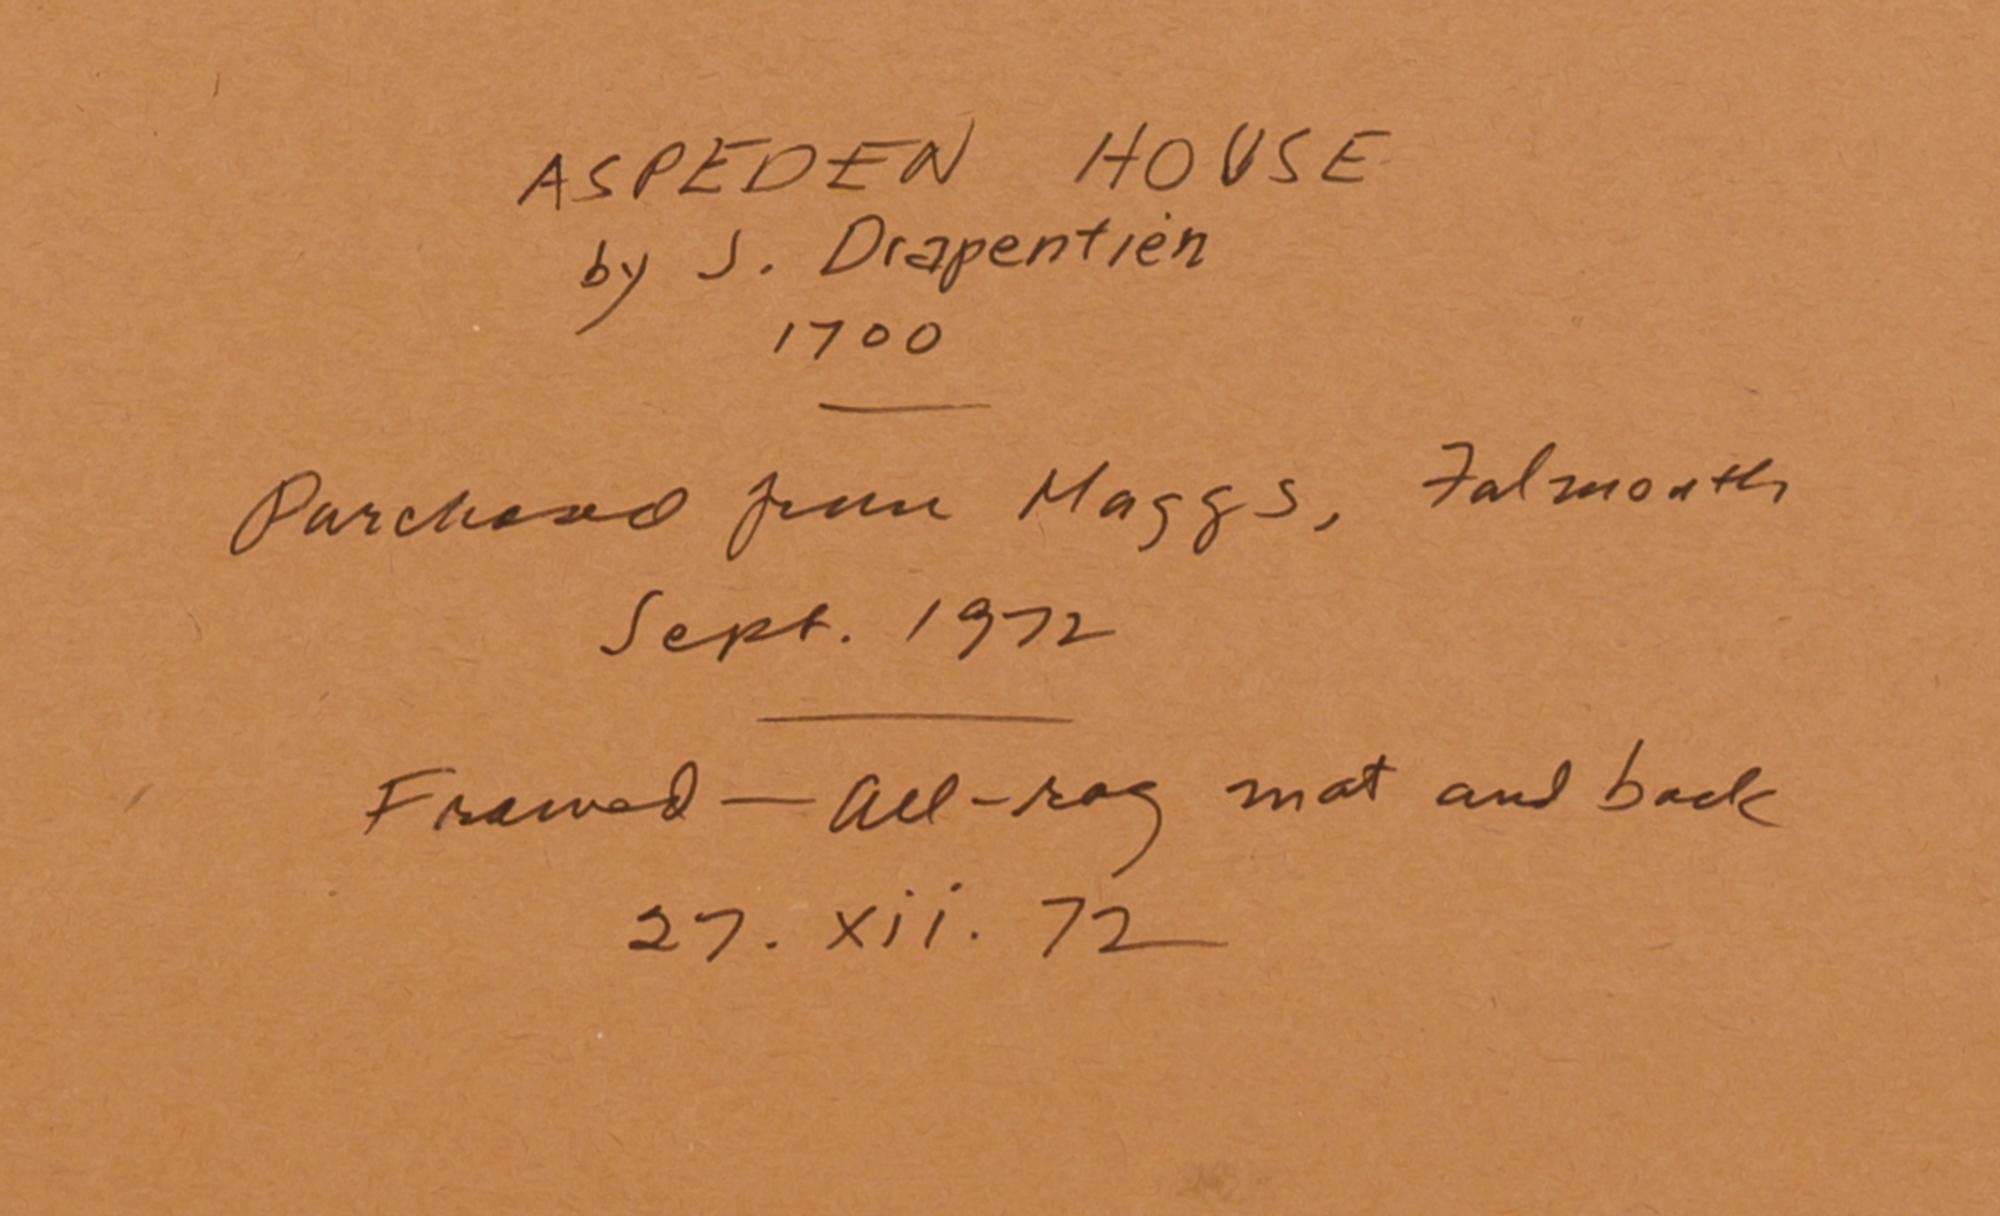 ASPEDEN HOUSE
by J. Drapentien
1700
Purchased from Maggs, Falmouth
Sept. 1972
Framed — all-rag mat and back
27. xii. 72